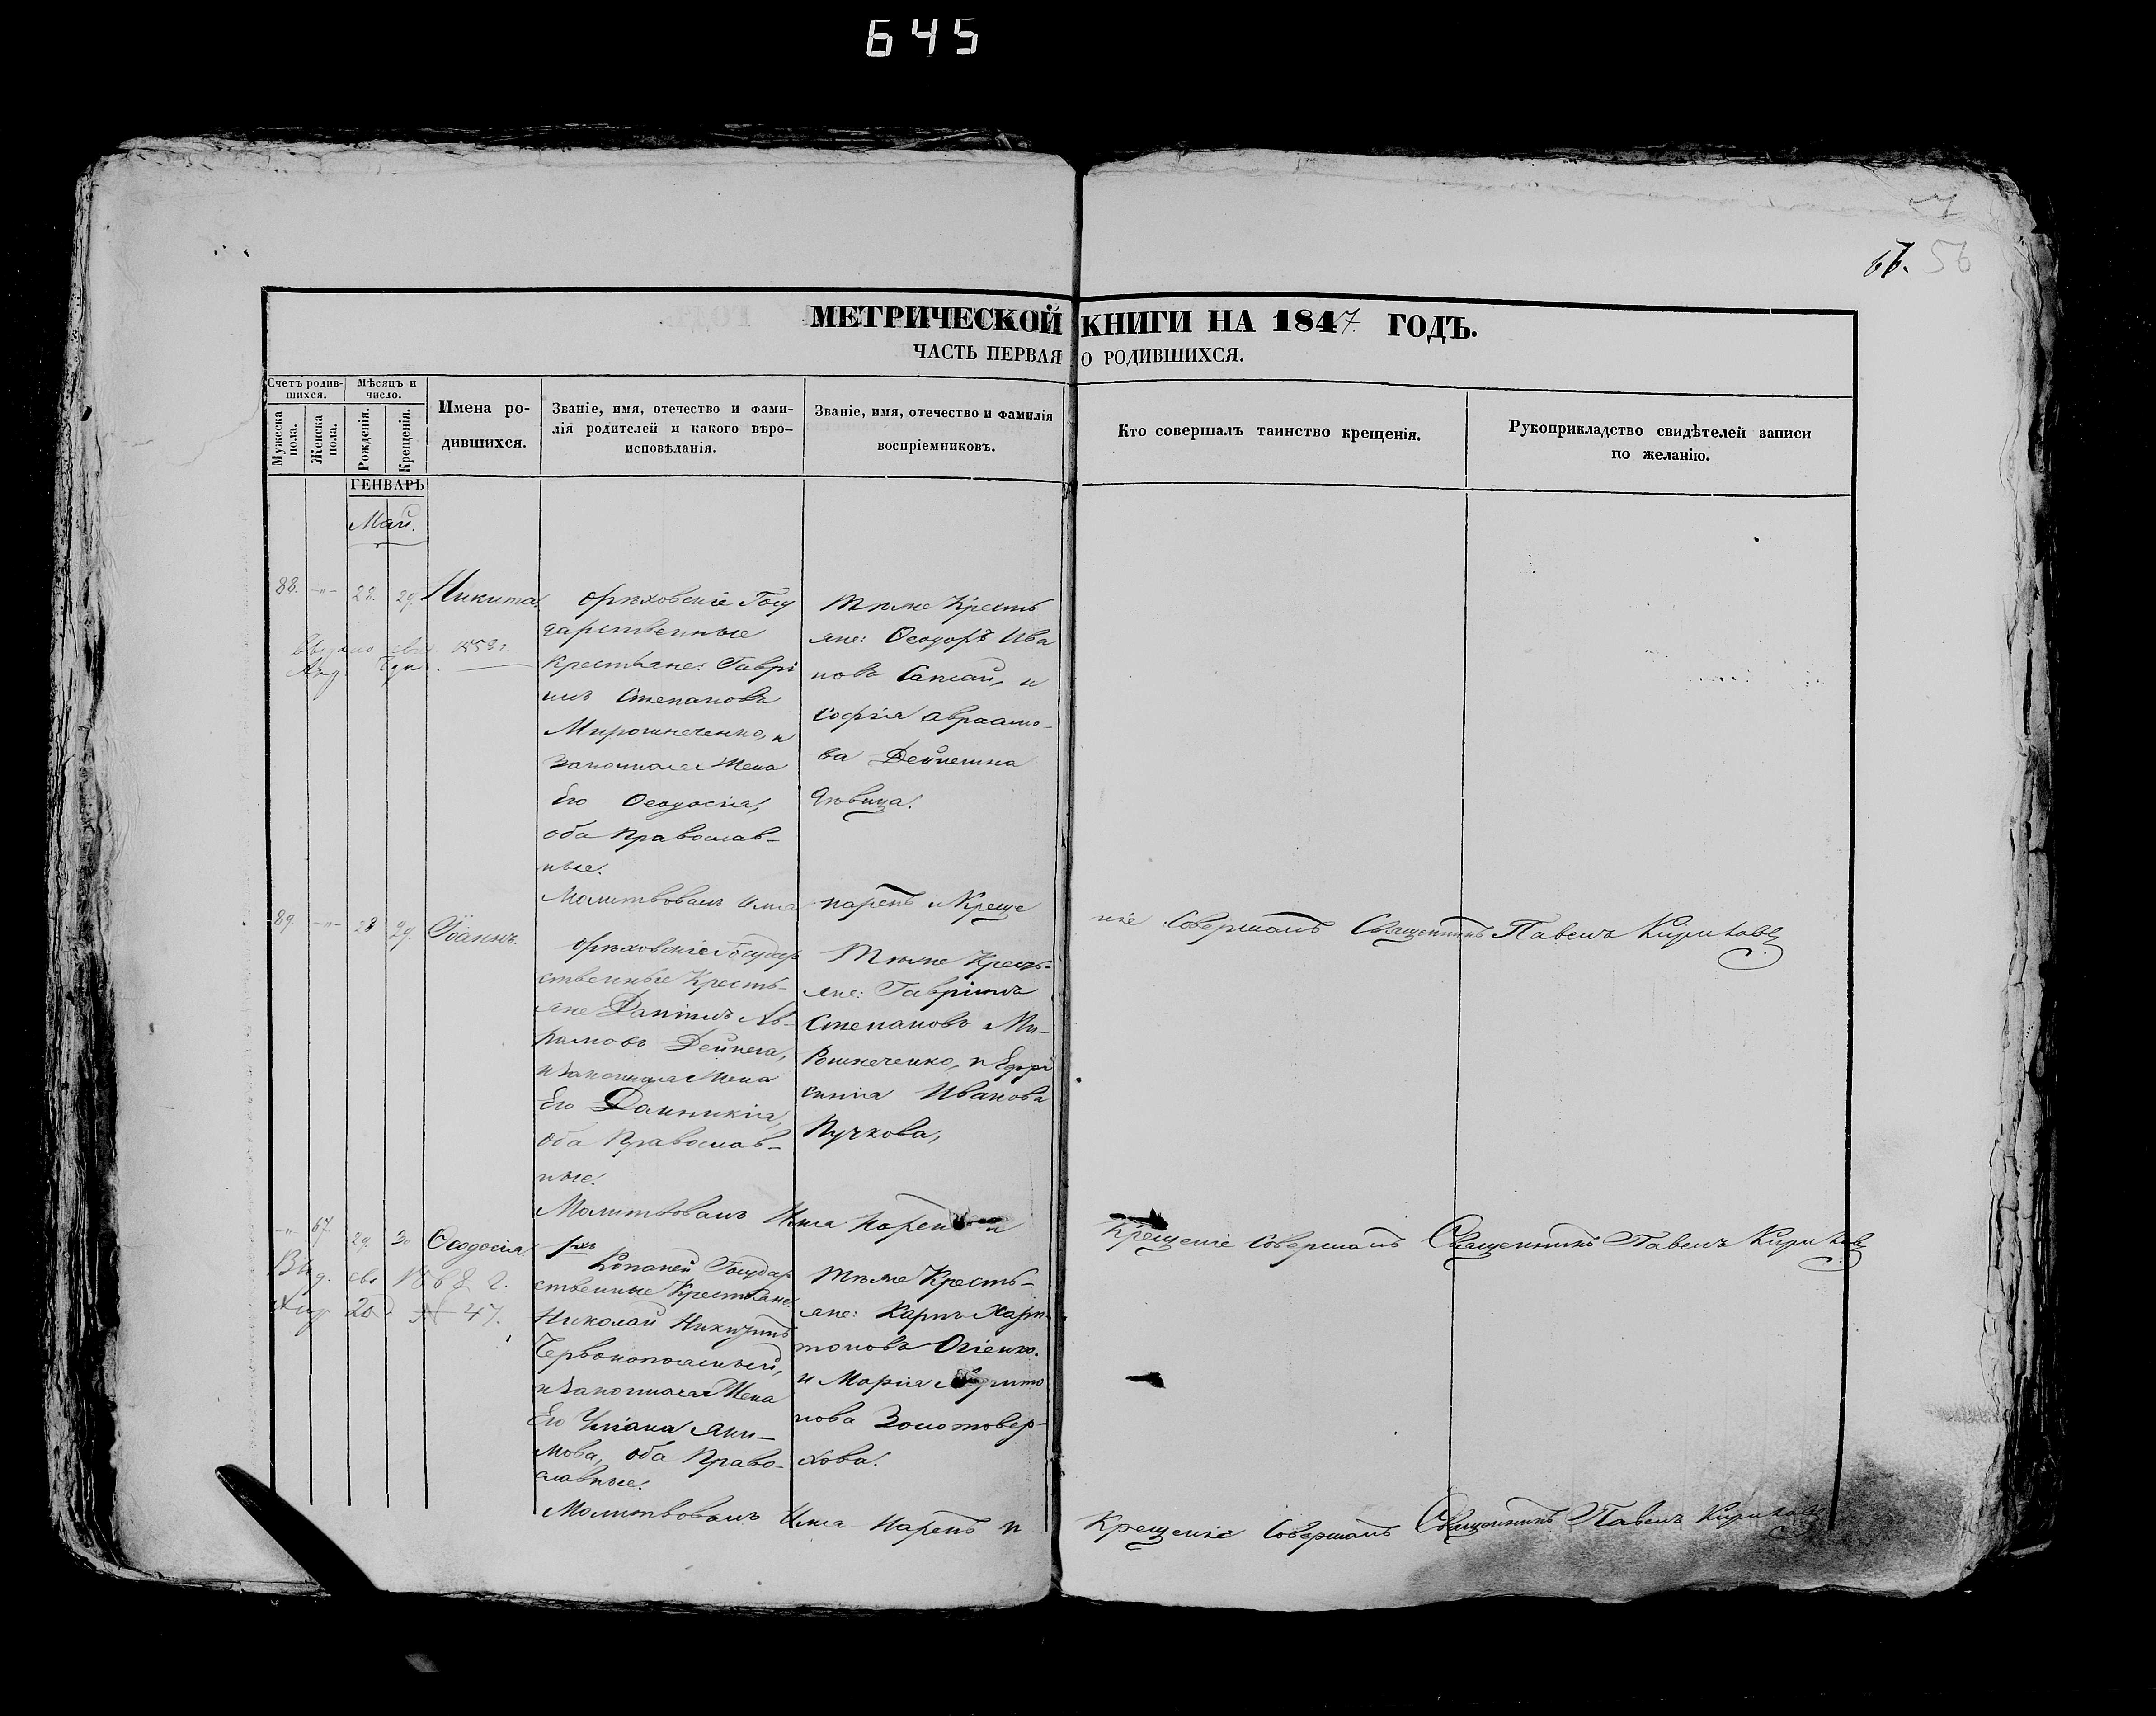 645
56
МЕТРИЧЕСКОЙ КНИГИ НА 1847. ГОДЪ.
ЧАСТЬ ПЕРВАЯ О РОДИВШИХСЯ.
Счетъ родив-
шихся.
Мужеска
пола.
Женска
пола.
Мѣсяцъ и
число.
Рожденія.
Крещенія.
Имена ро-
дившихся.
Званіе, имя, отечество и фами-
лія родителей и какого вѣро-
исповѣданія.
Званіе, имя, отечество и фамилія
воспріемниковъ.
Кто совершалъ таинство крещенія.
Рукоприкладство свидѣтелей записи
по желанію.
ГЕНВАРЬ
Май.
88. -"- 28. 29. Никита.
Орѣховскіе Госу
дарственные
Крестьяне: Гаврі
илъ Степановъ
Мирошнеченко, и
законная Жена
Его Ѳеодосія,
оба Православ-
ные.
Тѣже Кресть
яне: Ѳеодоръ Ива
новъ и
Софія Авраамо-
ва
дѣвица.
Молитвовалъ Имя нарекъ и Креще
ніе Совершалъ Священникъ Павелъ
89. -"- 28 29. Іоаннъ.
Орѣховскіе Государ
ственные Кресть-
яне Даніилъ Ав-
рамовъ Дейнега,
и законная Жена
Его Домникія,
Оба Православ-
ные.
Тѣже Кресть-
яне: Гавріилъ
Степановъ Ми-
рошнеченко, и Ефро
синія Иванова
Пучкова,
Молитвовалъ Имя Нарекъ и
Крещеніе Совершалъ Священникъ Павелъ
-"- 67 29. 30 Ѳеодосія.
1868 г.
20 № 47.
Копаней Государ
ственные Крестьяне:
Николай Никитинъ
Червонопоясный,
и законная Жена
Его Уліана Яки-
мова, оба Право-
славные.
Тѣже Кресть-
яне: Карпъ Хари-
тоновъ Огіенко.
и Марія
нова Золотовер-
хова.
Молитвовалъ Имя Нарекъ и
Крещеніе Совершалъ Священникъ Павелъ